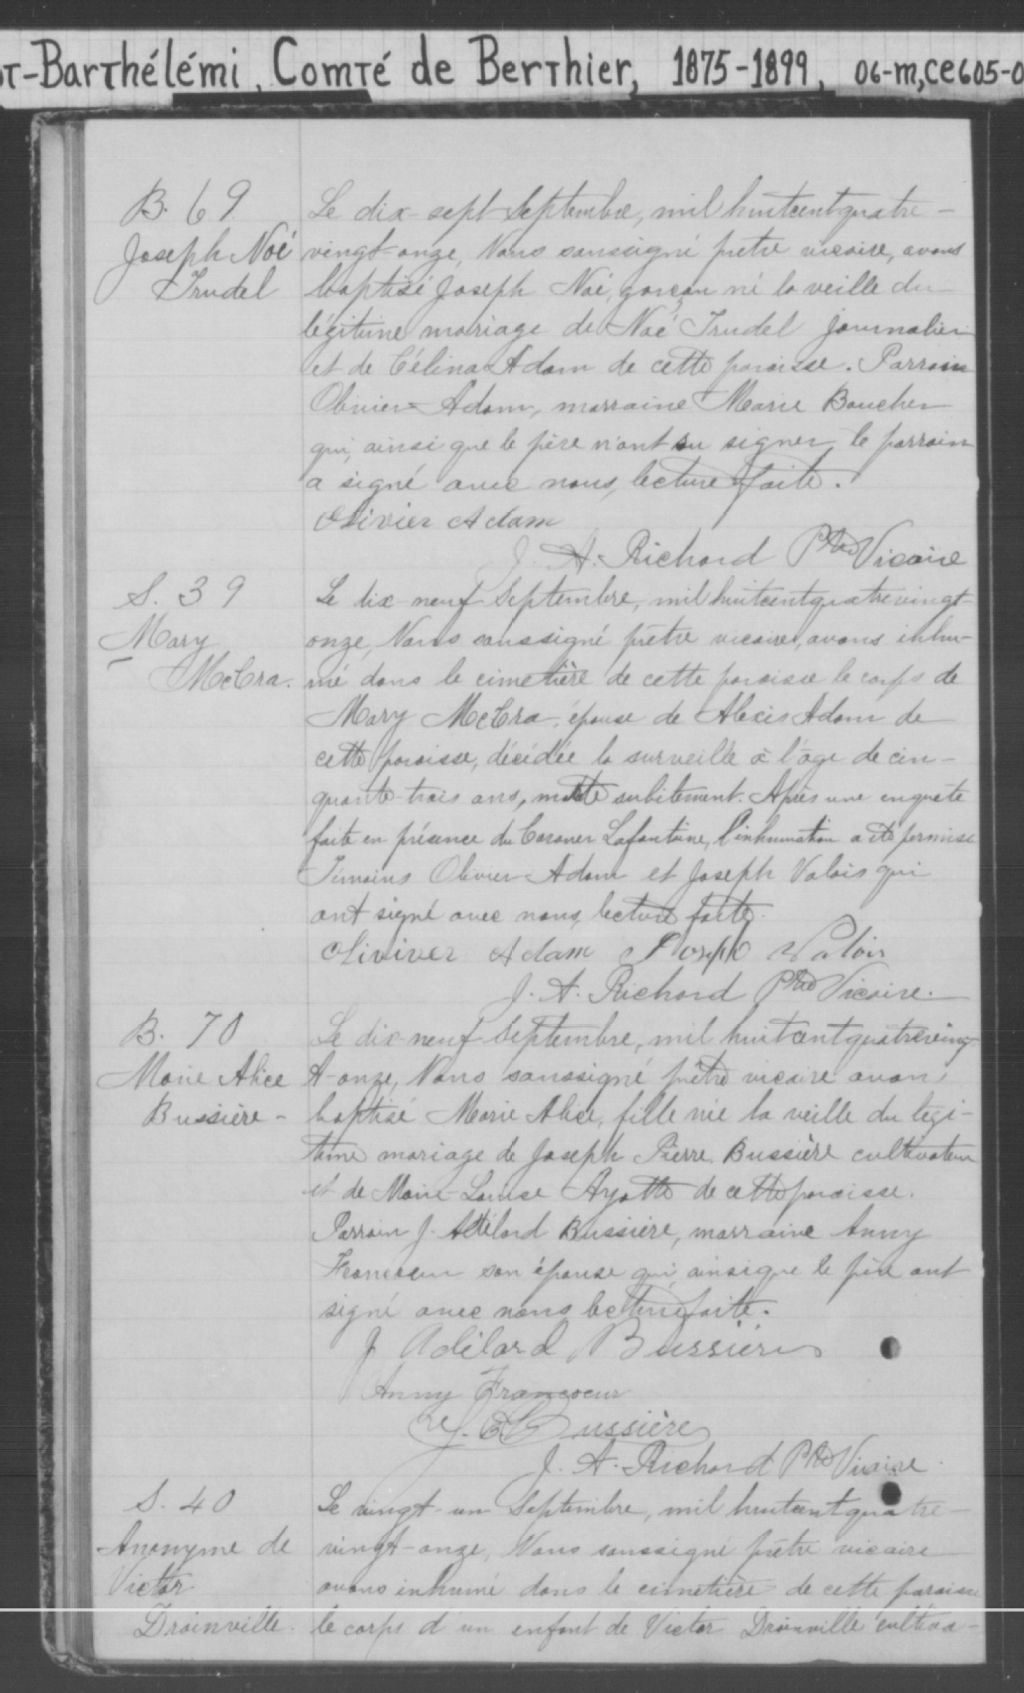 T-Barthélémi, Comté de Berthier, 1875-1899, 06-m,CE605-0
B. 69
Joseph Noé
Trudel
Le dix-sept Septembre, mil huitcentquatre-
vingt-onze, Nous soussigné prêtre vicaire, avons
baptisé Joseph Noé, garçon né la veille du
légitime mariage de Noé Trudel journalier
et de Célina Adam de cette paroisse. Parrain
Olivier Adam, marraine Marie Boucher
qui, ainsi que le père n'ont su signer, le parrain
a signé avec nous, lecture faite.
Olivier Adam
J. A. Richard Ptre Vicaire
S. 39
Mary
McCra.
Le dix-neuf Septembre, mil huitcentquatrevingt-
onze, Nous soussigné prêtre vicaire, avons inhu-
mé dans le cimetière de cette paroisse le corps de
Mary McCra, épouse de Alexis Adam de
cette paroisse, décédée la surveille à l'âge de cin-
quante-trois ans, morte subitement. Après une enquête
faite en présence du Coroner Lafontaine, l'inhumation a été permise
Témoins Olivier Adam et Joseph Valois qui
ont signé avec nous, lecture faite.
Oliviver Adam Joseph Valois
J. A. Richard Ptre Vicaire.
B. 70
Marie Alice
Bussière-
Le dix-neuf Septembre, mil huitcentquatreving
t-onze, Nous soussigné prêtre vicaire avons
baptisé Marie Alice, fille née la veille du légi-
time mariage de Joseph Pierre Bussière cultivateur
et de Marie-Louise Ayotte de cette paroisse.
Parrain J. Adélard Bussière, marraine Anny
Francoeur son épouse qui, ainsi que le père ont
signé avec nous lecture faite.
J Adélard Bussière
Anny Francoeur
J. Bussière
J. A. Richard Ptre Vicaire.
S. 40
Anonyme de
Victor
Drainville.
Le vingt-un Septembre, mil huitcentquatre-
vingt-onze, Nous soussigné prêtre vicaire
avons inhumé dans le cimetière de cette paroisse
le corps d'un enfant de Victor Drainville cultiva-